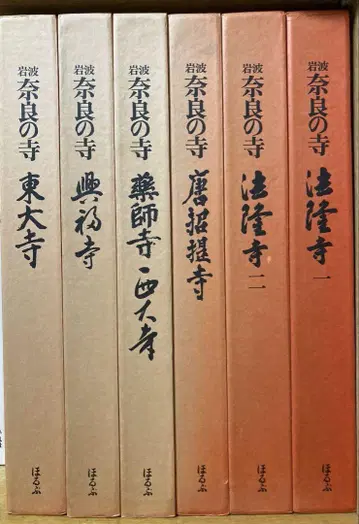 岩波
奈良の寺
法隆寺 一
ほるぷ
岩波
奈良の寺
法隆寺 二
ほるぷ
岩波
奈良の寺
唐招提寺
ほるぷ
岩波
奈良の寺
薬師寺・西大寺
ほるぷ
岩波
奈良の寺
興福寺
ほるぷ
岩波
奈良の寺
東大寺
ほるぷ